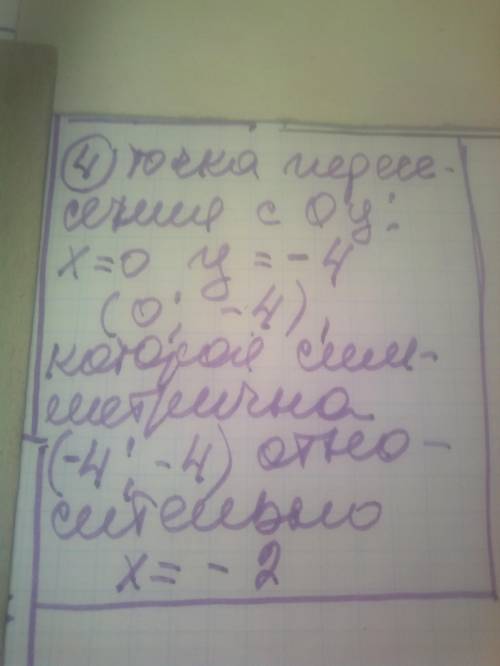 ④ точка пересе-
чения с Oy:
x=0 y=-4
(0; -4),
которая сим-
метрична
(-4; -4) отно-
сительно
x=-2